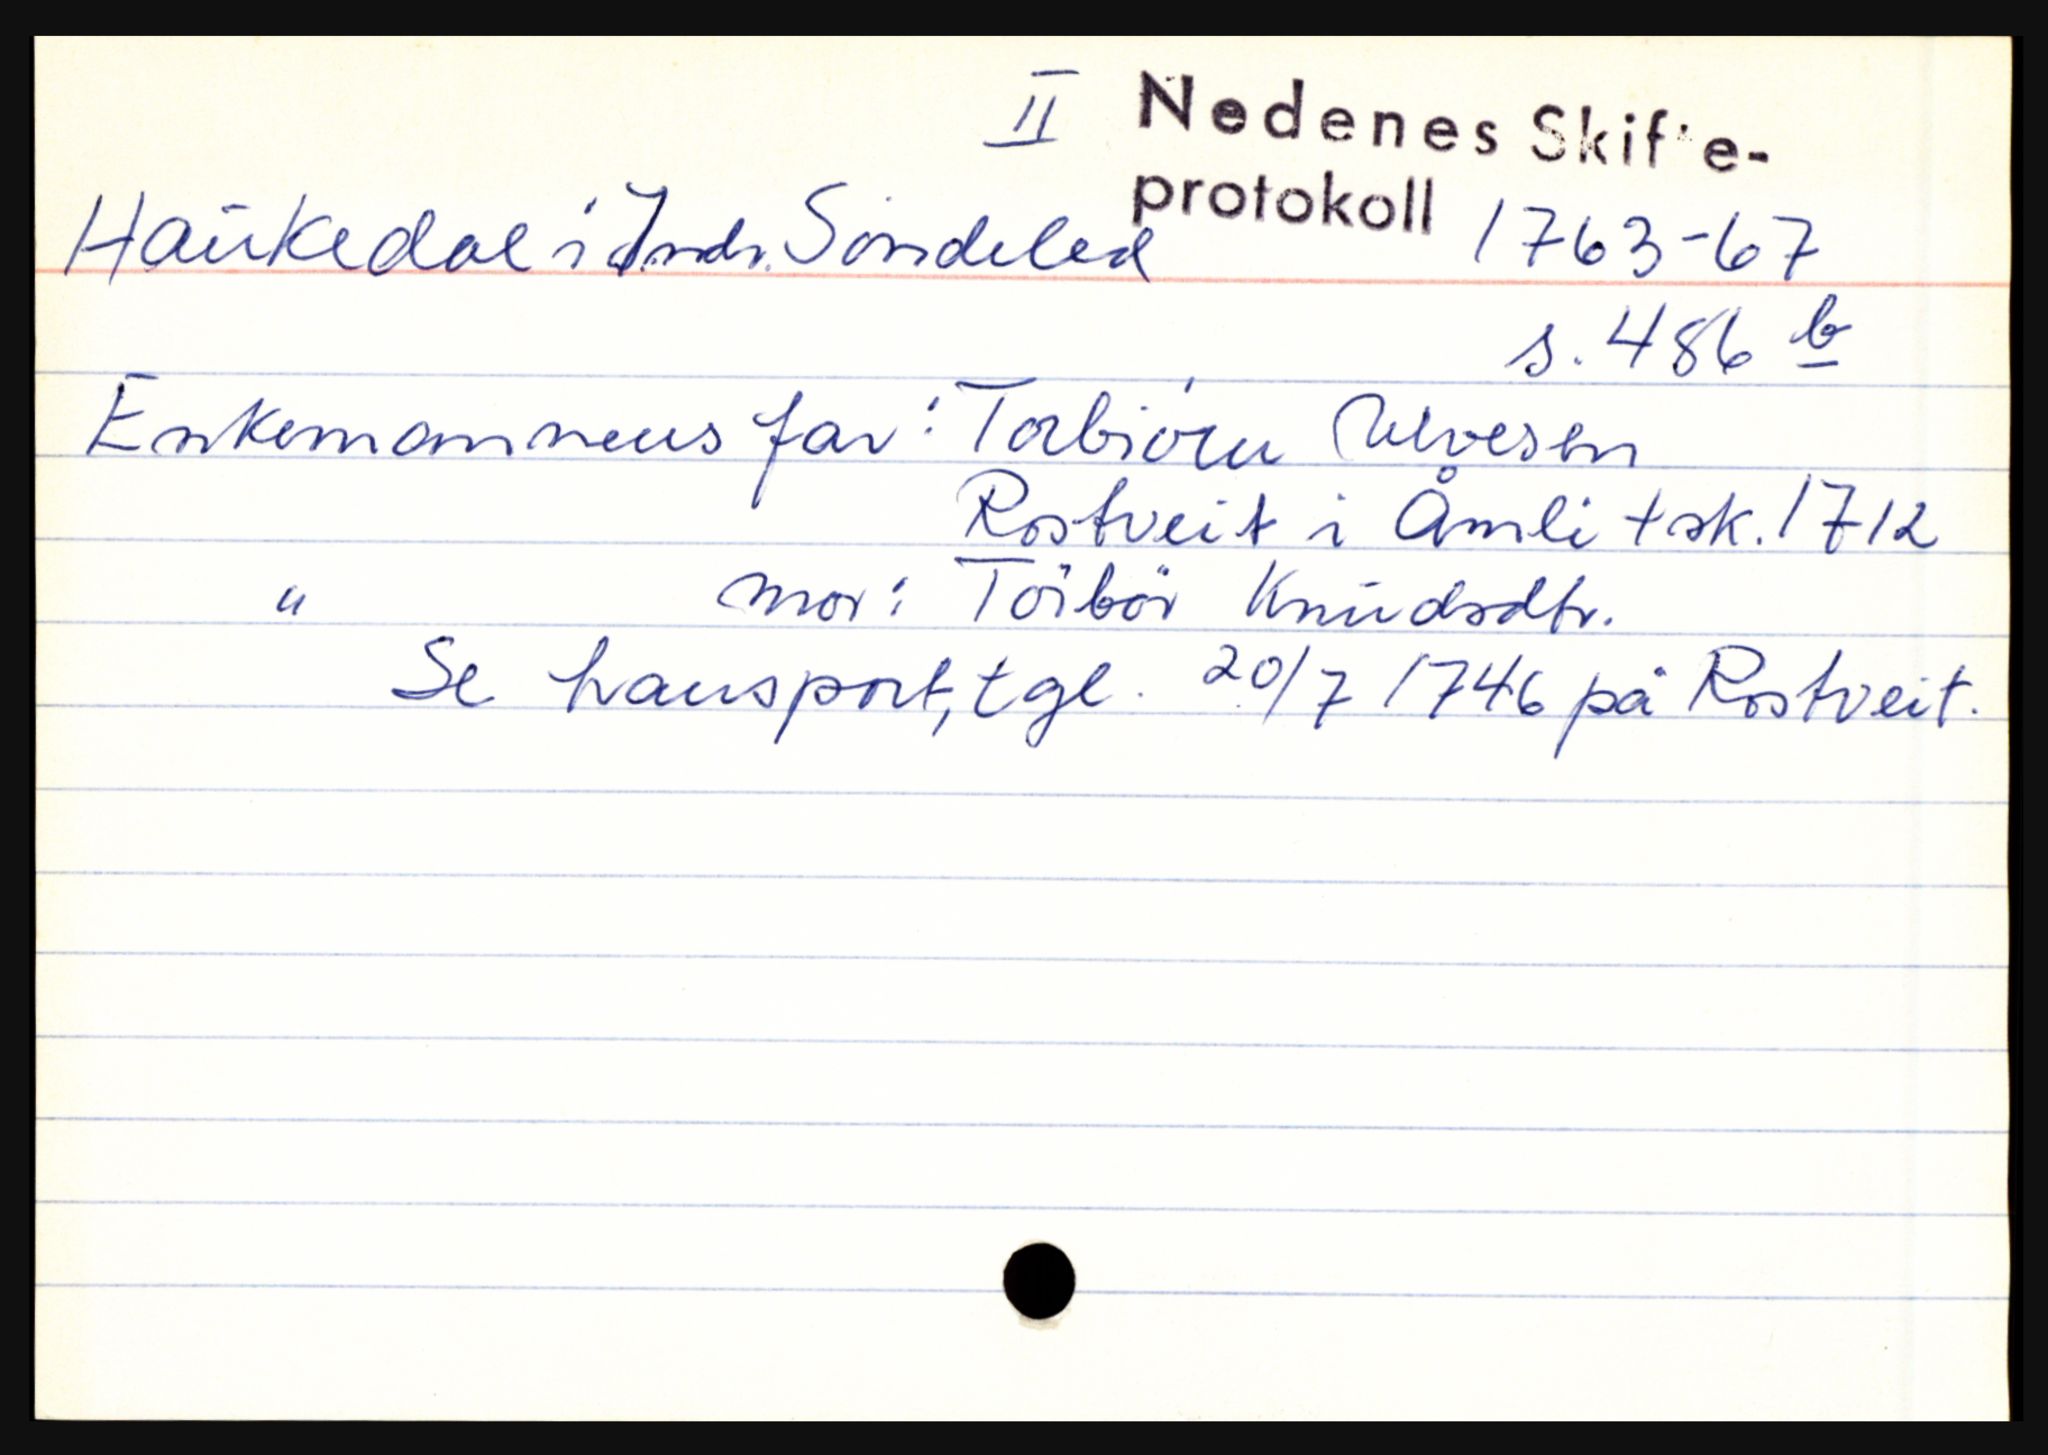 II Nedenes Skifte-
protokoll
Haukedal i Indr. Söndeled 1763-67
s. 486 b
Enkemannens far: Torbiörn Ulvesen
Rostveit i Åmli + sk. 1712
" mor: Töibör Knudsdtr.
Se transport, tgl. 20/7 1746 på Rostveit.